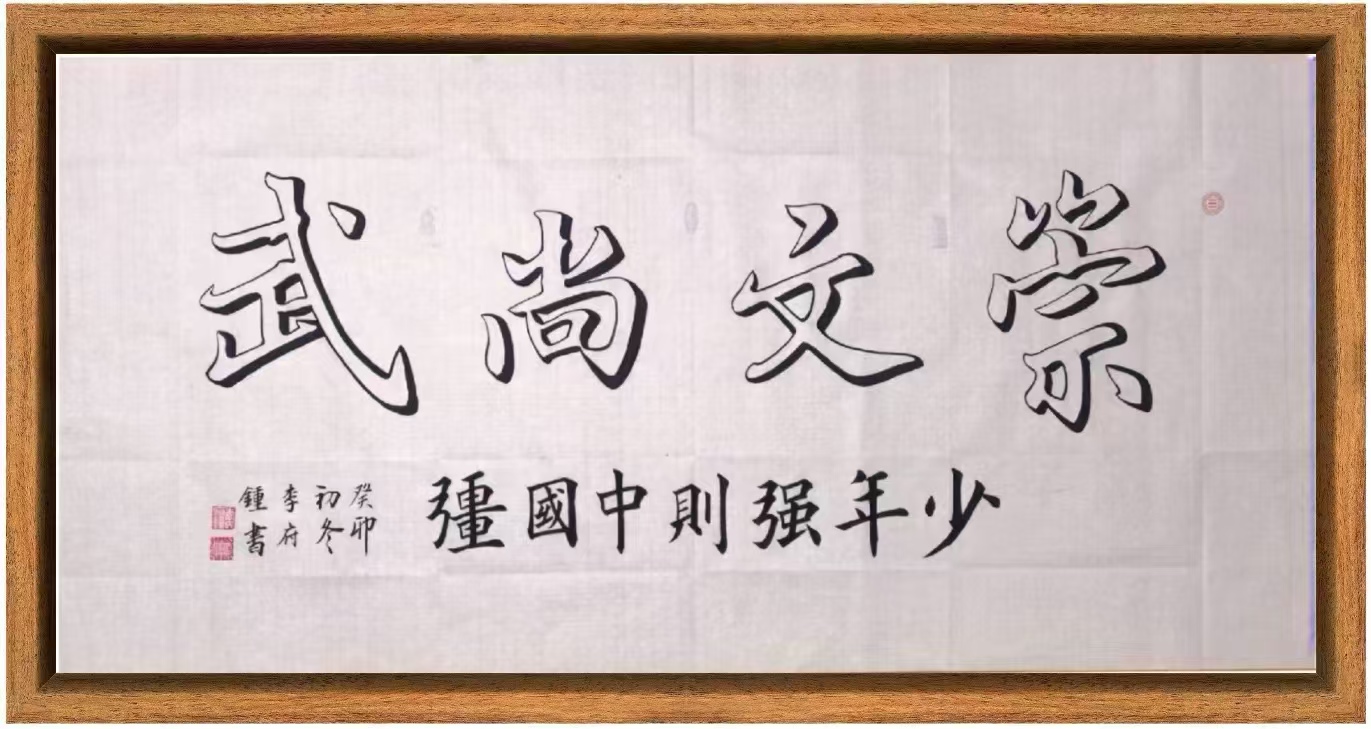 崇文尚武
少年强则中國彊
癸卯
初冬
李府
鍾書